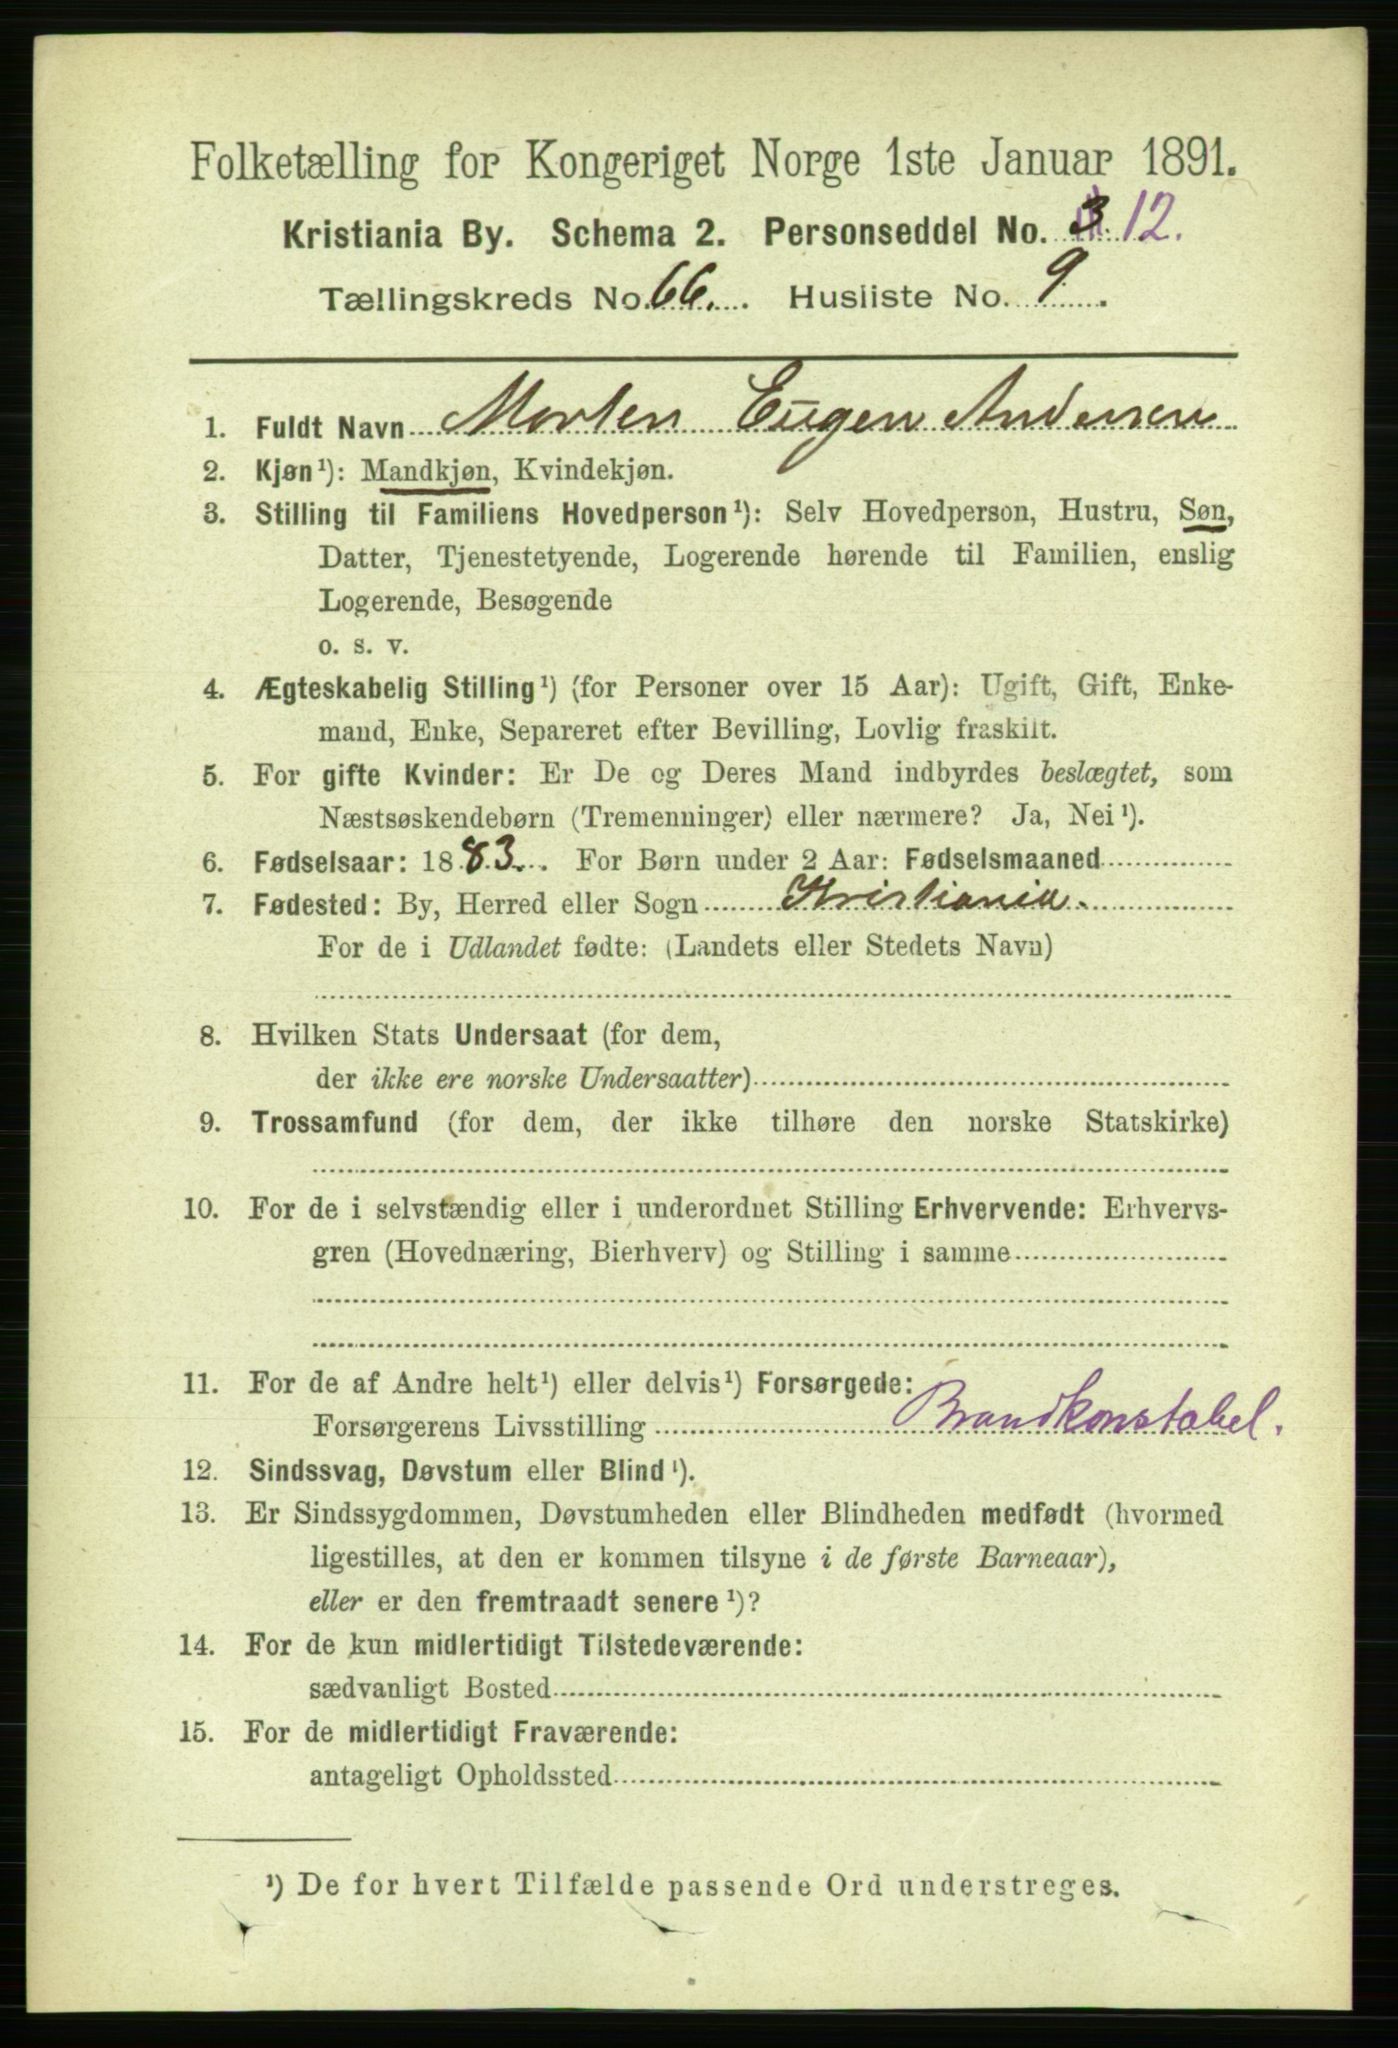 Folketælling for Kongeriget Norge 1ste Januar 1891.
Kristiania By. Schema 2. Personseddel No. 3 12.
Tællingskreds No. 66. Husliste No. 9.
1. Fuldt Navn Morten Eugen Andersen
2. Kjøn¹): Mandkjøn, Kvindekjøn.
3. Stilling til Familiens Hovedperson¹): Selv Hovedperson, Hustru, Søn,
Datter, Tjenestetyende, Logerende hørende til Familien, enslig
Logerende, Besøgende
o. s. v.
4. Ægteskabelig Stilling¹) (for Personer over 15 Aar): Ugift, Gift, Enke-
mand, Enke, Separeret efter Bevilling, Lovlig fraskilt.
5. For gifte Kvinder: Er De og Deres Mand indbyrdes beslægtet, som
Næstsøskendebørn (Tremenninger) eller nærmere? Ja, Nei¹).
6. Fødselsaar: 1883. For Børn under 2 Aar: Fødselsmaaned
7. Fødested: By, Herred eller Sogn Kristiania.
For de i Udlandet fødte: (Landets eller Stedets Navn)
8. Hvilken Stats Undersaat (for dem,
der ikke ere norske Undersaatter)
9. Trossamfund (for dem, der ikke tilhøre den norske Statskirke)
10. For de i selvstændig eller i underordnet Stilling Erhvervende: Erhvervs-
gren (Hovednæring, Bierhverv) og Stilling i samme
11. For de af Andre helt¹) eller delvis¹) Forsørgede:
Forsørgerens Livsstilling Brandkonstabel.
12. Sindssvag, Døvstum eller Blind¹).
13. Er Sindssygdommen, Døvstumheden eller Blindheden medfødt (hvormed
ligestilles, at den er kommen tilsyne i de første Barneaar),
eller er den fremtraadt senere¹)?
14. For de kun midlertidigt Tilstedeværende:
sædvanligt Bosted
15. For de midlertidigt Fraværende:
antageligt Opholdssted
¹) De for hvert Tilfælde passende Ord understreges.